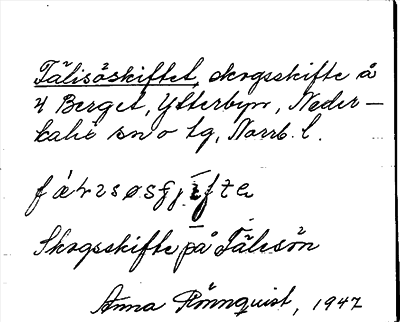 Tälisöskiftet, skogsskifte å
4 Berget, Ytterbyn, Neder-
kalix sn o tg, Norrb. l.
Skogsskifte på Tälisön
Anna Rönnquist, 1947